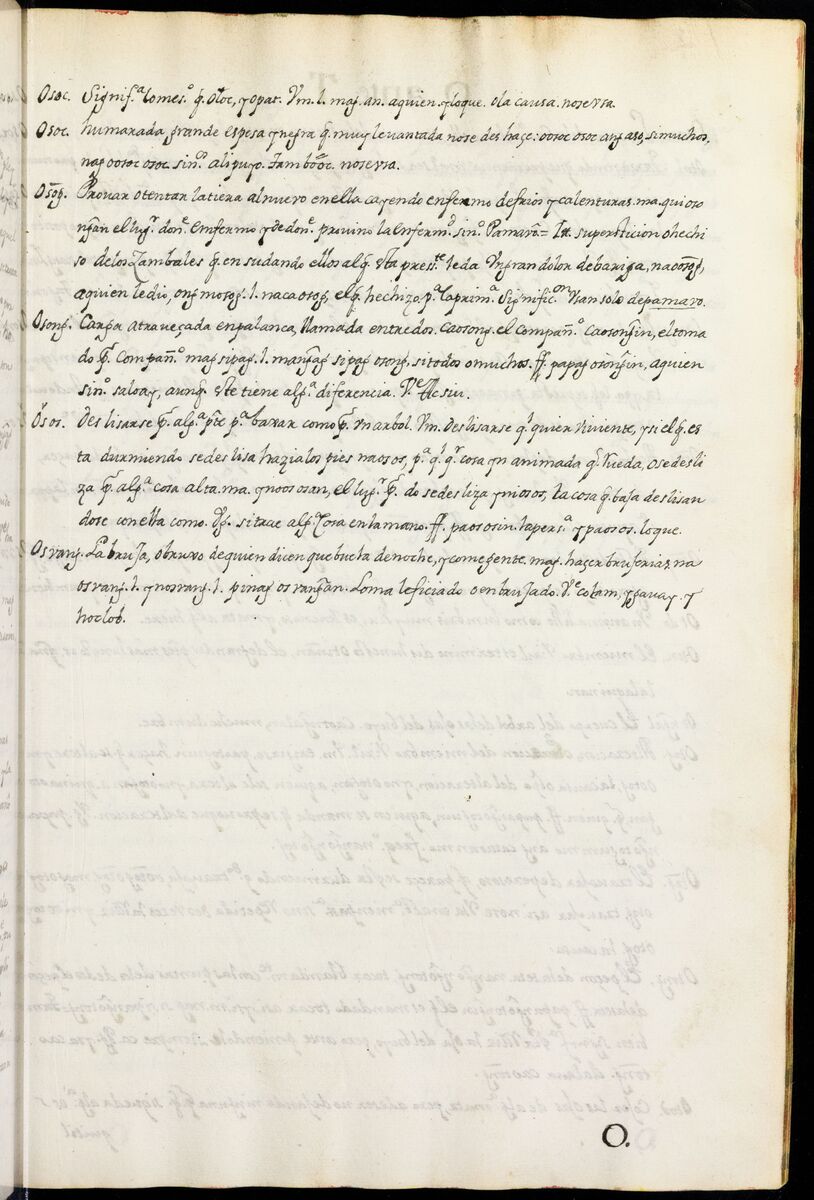 Osoc. Signif.ª lo mes.º q̃. otoc, y opac. Vm. l. mag. an. a quien. y lo que. o la causa. no se vsa.
Osoc. humarada grande espesa y negra q̃. muy levantada no se deshaçe: oosoc osoc ang aso, si muchos,
nag oosoc osoc. sin.º alipuyo. tambooc. no se vsa.
Provar o tentar la tierra al nuevo en ella cayendo enfermo de frios y calenturas. ma. qui oso
ngan el lug.r don.e enfermo y de don.e provino la enferm.d sin.º Pamaro. = It. supersticion o hechi
so de los Zambales q̃. en sudando ellos al q̃. esta pres.te le da vn gran dolor de bariga, na
a quien le dio, l. naca osog, el q̃. hechiza, p.ª la prim.ª signific.on vsan solo de pamaro.
Osong. Carga atraveçada en palanca, llamada entre dos. caosong. el compañ.º caosongin, el toma
do p.r compañ.º mag sipag. l. mangag sipag osong, si todos o muchos. ff. papag osongin, a quien
sin.º saloay, aunq̃. este tiene alg.ª diferencia. V.e
Osos. Deslisarse p.r alg.ª pte p.ª baxar como p.r vn arbol. Vm. deslisarse ql quier viviente, y si el q̃. es
ta durmiendo se deslisa hazia los pies naosos, p.ª ql qr cosa yn animada q̃. rueda, o se desli
za p.r alg.ª cosa alta. ma. ynoososan, el lug.r p.r do se desliza yniosos, la cosa q̃. baja deslisan
dose con ella como. Vg. si trae alg.ª cosa en la mano. ff. paososin. la pers.ª y paosos. lo que.
Osvang. La bruja, o bruxo de quien dicen que buela de noche, y come gente. mag. haçer bruserias, na
osvang. l. ynosvang. l. pinag osvangan. lo maleficiado o enbrujado. V.e colam, y
hoclob.
O.